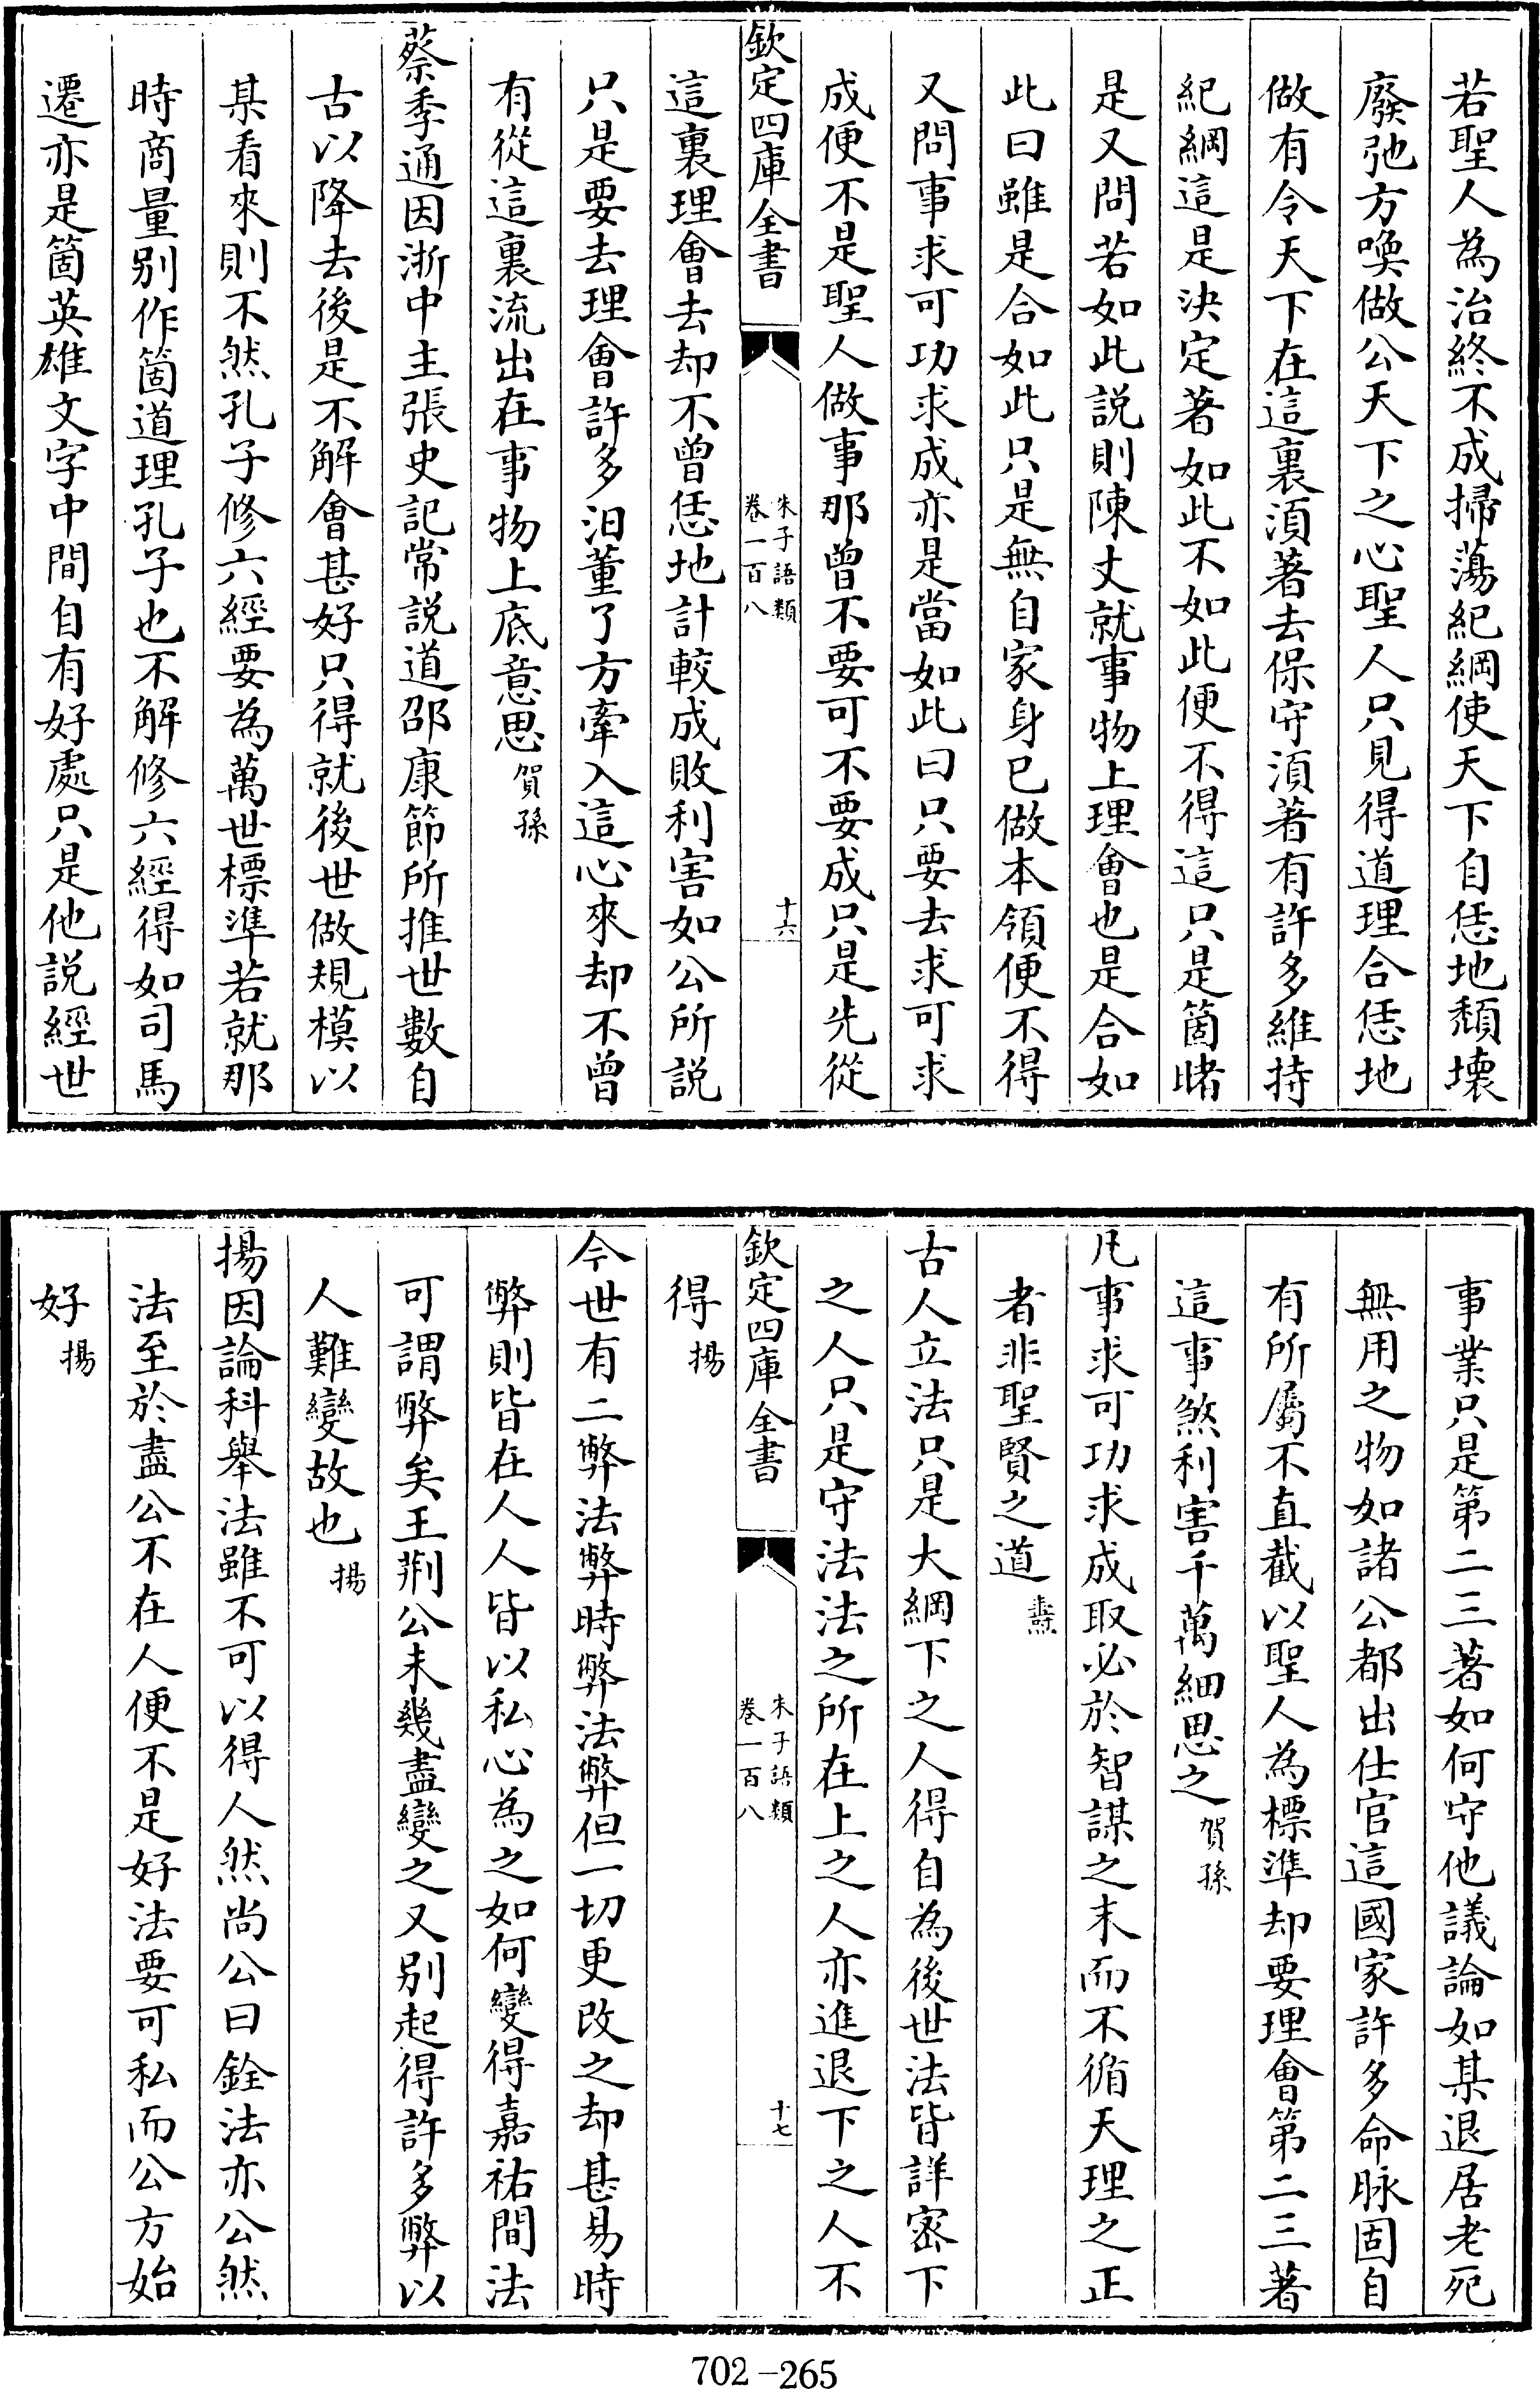 若聖人為治終不成掃蕩紀綱使天下自恁地頽壊
廢弛方喚做公天下之心聖人只見得道理合恁地
做有令天下在這裏須著去保守須著有許多維持
紀綱這是決定著如此不如此便不得這只是箇睹
是又問若如此説則陳丈就事物上理會也是合如
此曰雖是合如此只是無自家身已做本領便不得
又問事求可功求成亦是當如此曰只要去求可求
成便不是聖人做事那曾不要可不要成只是先從
欽定四庫全書
朱子語類
卷一百八
十六
這裏理會去却不曾恁地計較成敗利害如公所説
只是要去理會許多汨董了方牽入這心來却不曾
有從這裏流出在事物上底意思賀孫
蔡季通因浙中主張史記常説道邵康節所推世數自
古以降去後是不解會甚好只得就後世做規模以
某看來則不然孔子修六經要為萬世標準若就那
時商量别作箇道理孔子也不解修六經得如司馬
遷亦是箇英雄文字中間自有好處只是他説經世
事業只是第二三著如何守他議論如某退居老死
無用之物如諸公都出仕官這國家許多命脉固自
有所屬不直截以聖人為標準却要理會第二三著
這事煞利害千萬細思之賀孫
凡事求可功求成取必於智謀之末而不循天理之正
者非聖賢之道燾
古人立法只是大綱下之人得自為後世法皆詳密下
之人只是守法法之所在上之人亦進退下之人不
欽定四庫全書
朱子語類
卷一百八
十七
得揚
今世有二弊法弊時弊法弊但一切更改之却甚易時
弊則皆在人人皆以私心為之如何變得嘉祐間法
可謂弊矣王荆公未幾盡變之又别起得許多弊以
人難變故也揚
揚因論科舉法雖不可以得人然尚公曰銓法亦公然
法至於盡公不在人便不是好法要可私而公方始
好揚
702-265